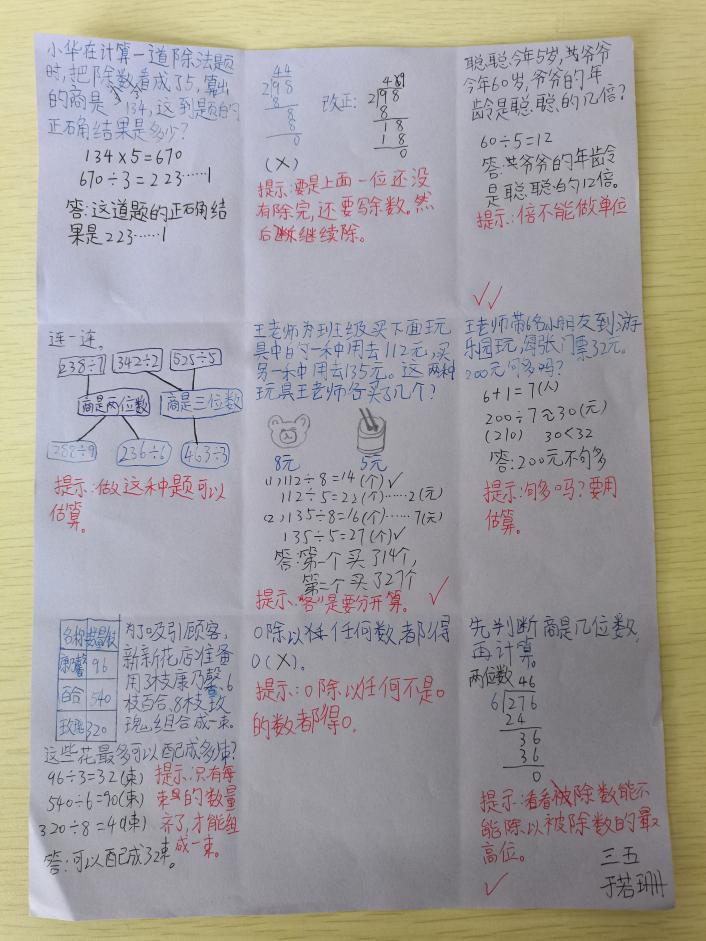 小华在计算一道除法题
时,把除数看成了5,算出
的商是134,这到题的
正确结果是多少?
134×5=670
670÷3=223……1
答:这道题的正确结
果是223……1
44
2 98
8
8
8
0
(×)
改正:
49
2 98
8
18
18
0
提示:要是上面一位还没
有除完,还要写余数。然
后继续除。
聪聪今年5岁,共爷爷
今年60岁,爷爷的年
龄是聪聪的几倍?
60÷5=12
答:共爷爷的年龄
是聪聪的12倍。
提示:倍不能做单位
连一连。
238÷7 342÷2 525÷5
商是两位数 商是三位数
288÷9 236÷6 463÷3
提示:做这种题可以
估算。
王老师为班级买下面玩
具中的一种用去112元,买
另一种用去135元。这两种
玩具王老师各买了几个?
8元 5元
(1)112÷8=14(个)✓
112÷5=22(个)……2(元)
(2)135÷8=16(个)……7(元)
135÷5=27(个)✓
答:第一个买了14个,
第二个买了27个
提示:“各”是要分开算。
王老师带6名小朋友到游
乐园玩,每张门票32元。
200元够吗?
6+1=7(人)
200÷7≈30(元)
(210) 30<32
答:200元不够
提示:够吗?要用
估算。
名称 数量/枝
康乃馨 96
百合 540
玫瑰 320
为了吸引顾客,
新新花店准备
用3枝康乃馨、6
枝百合、8枝玫
瑰组合成一束。
这些花最多可以配成多少束?
96÷3=32(束)
540÷6=90(束)
320÷8=40(束)
答:可以配成32束。
提示:只有每
束的数量
齐了,才能组
成一束。
0除以任何数都得
0(×)。
提示:0除以任何不是0
的数都得0。
先判断商是几位数,
再计算。
两位数 46
6 276
24
36
36
0
提示:看看被除数能不
能除以被除数的最
高位。
三五
于若珊